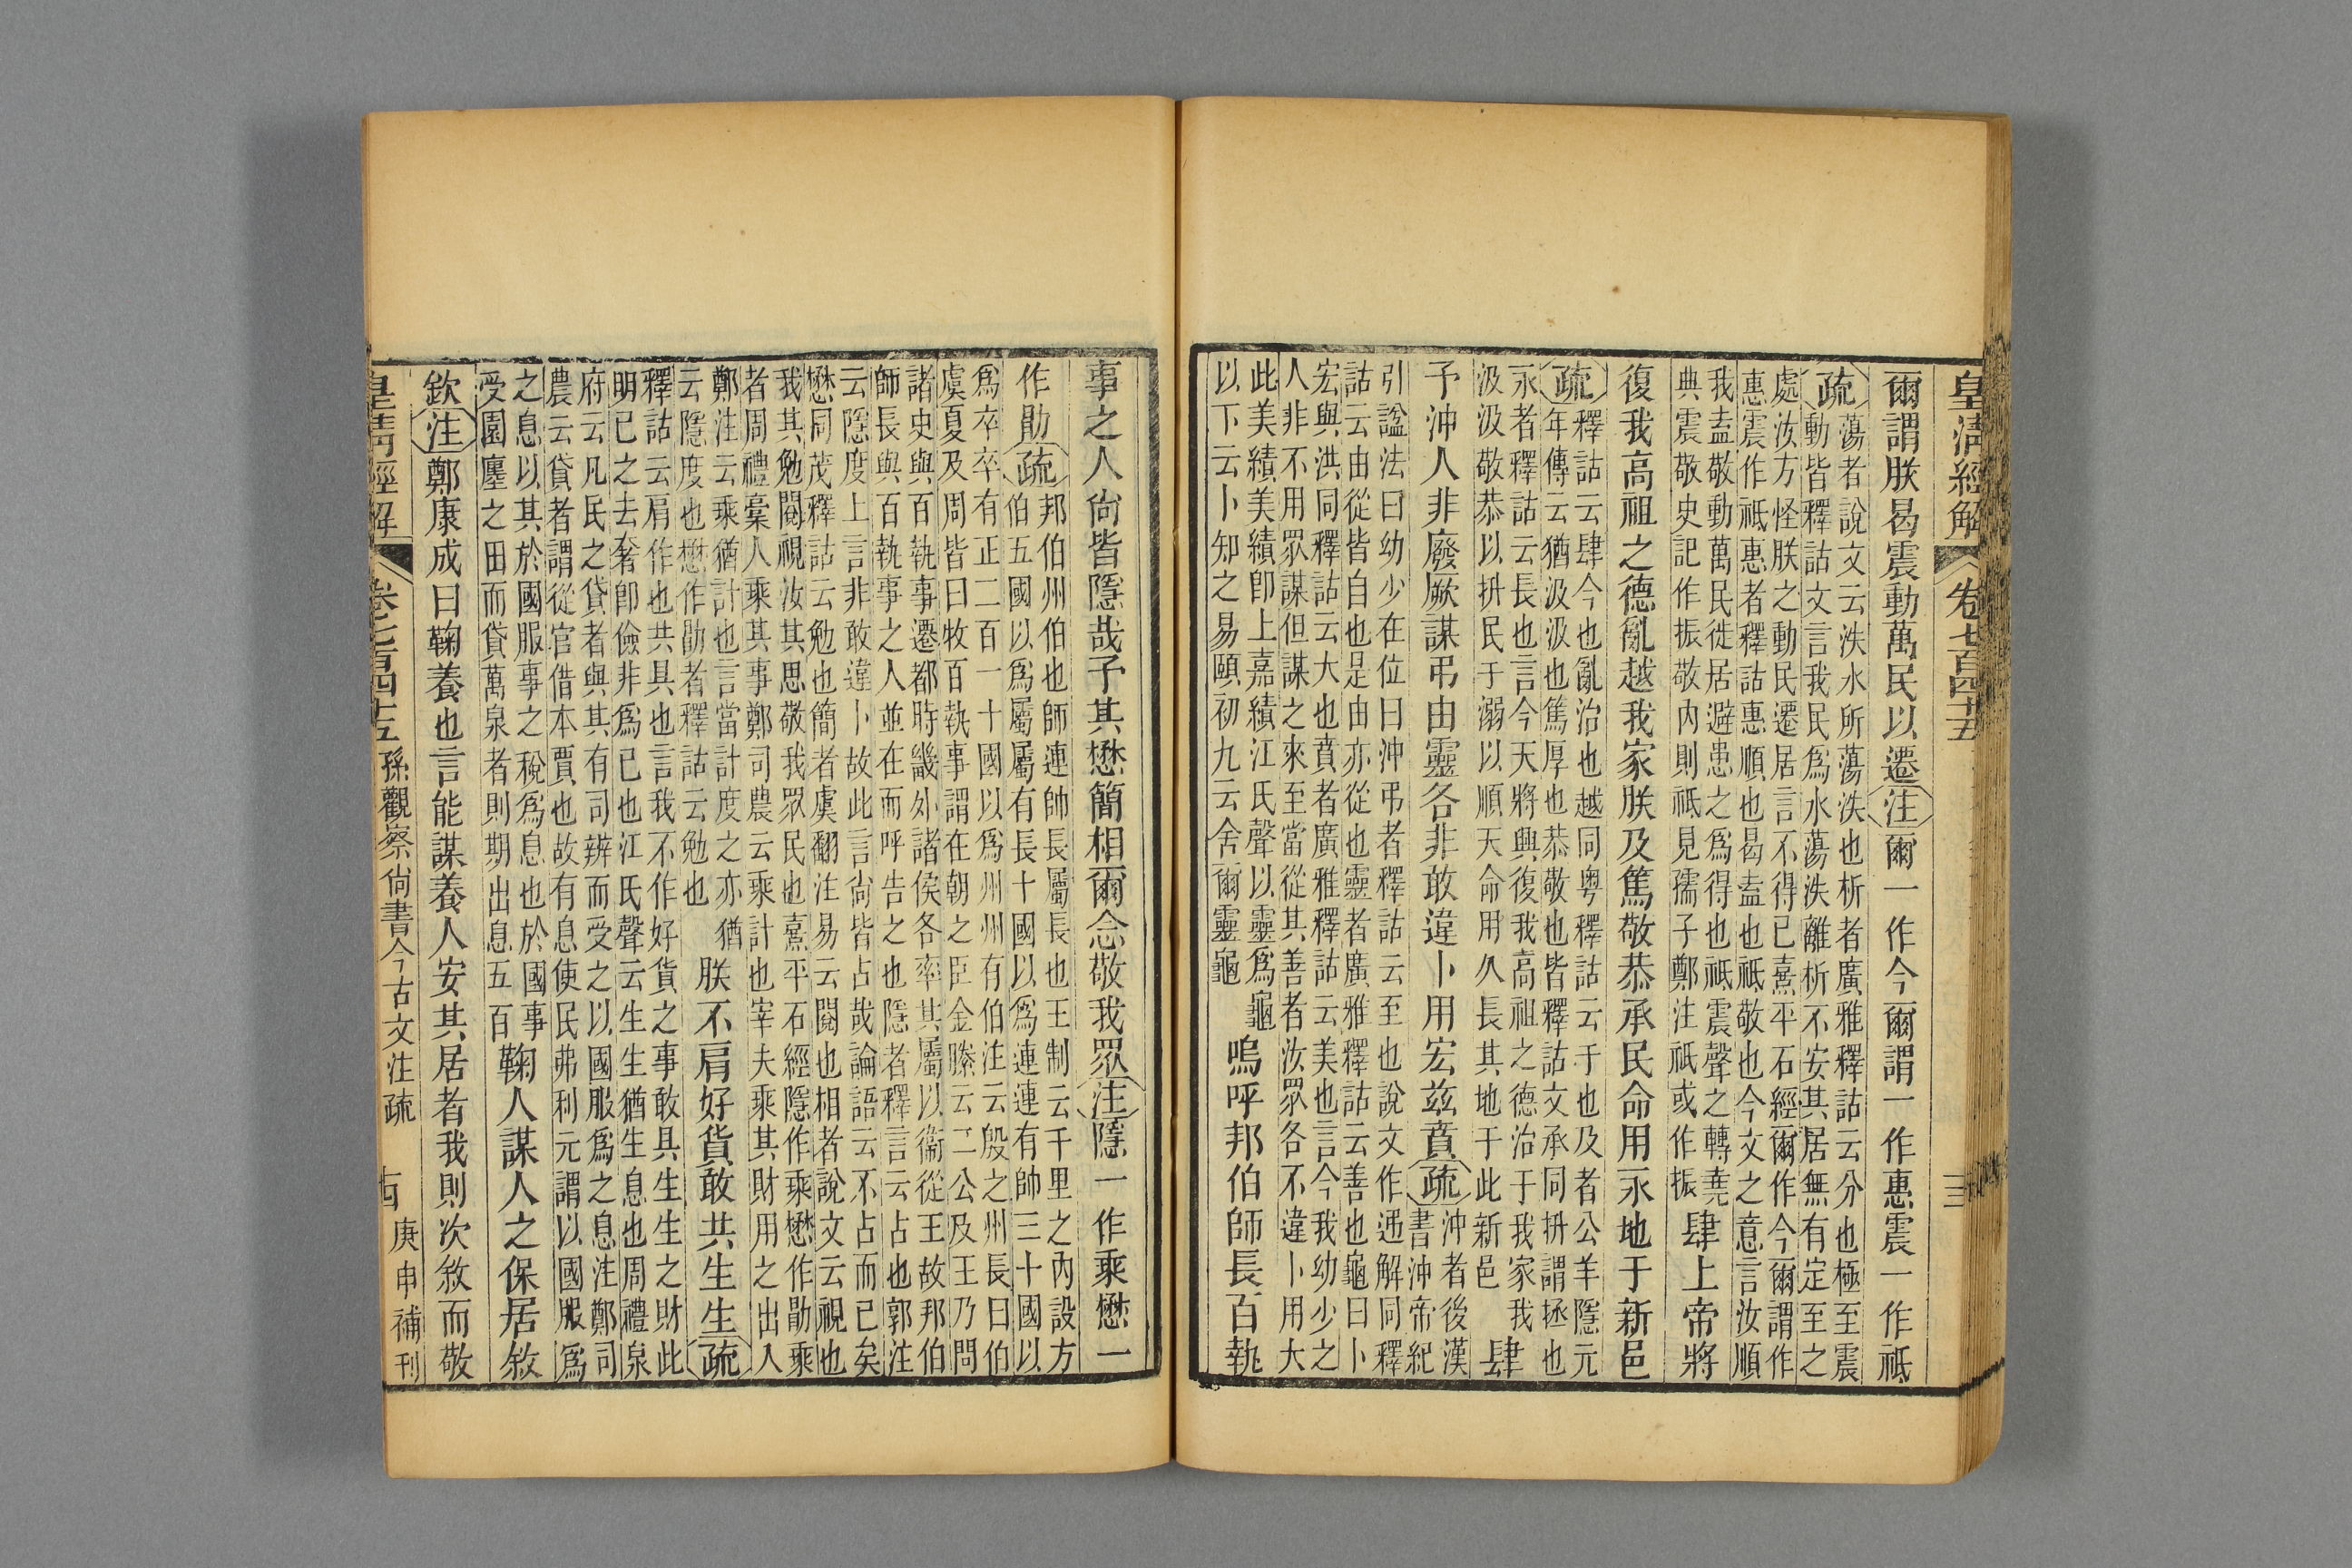 皇清經解
卷七百四十五
爾謂朕曷震動萬民以遷注爾一作今爾謂一作惠震一作祗
疏
蕩者說文云泆水所蕩泆也析者廣雅釋詁云分也極至震
動皆釋詁文言我民爲水蕩泆離析不安其居無有定至之
處汝方怪朕之動民遷居言不得已熹平石經爾作今爾謂作
惠震作祗惠者釋詁惠順也曷盍也祗敬也今文之意言汝順
我盍敬動萬民徙居避患之爲得也祗震聲之轉堯
典震敬史記作振敬內則祗見孺子鄭注祗或作振
肆上帝將
復我高祖之德亂越我家朕及篤敬恭承民命用永地于新邑
疏
釋詁云肆今也亂治也越同粵釋詁云于也及者公羊隱元
年傳云猶汲汲也篤厚也恭敬也皆釋詁文承同抍謂拯也
永者釋詁云長也言今天將興復我高祖之德治于我家我
汲汲敬恭以抍民于溺以順天命用久長其地于此新邑
肆
予沖人非廢厥謀弔由靈各非敢違卜用宏茲賁疏
沖者後漢
書沖帝紀
引諡法曰幼少在位曰沖弔者釋詁云至也說文作迺解同釋
詁云由從皆自也是由亦從也靈者廣雅釋詁云善也龜曰卜
宏與洪同釋詁云大也賁者廣雅釋詁云美也言今我幼少之
人非不用眾謀但謀之來至當從其善者汝眾各不違卜用大
此美績美績卽上嘉績江氏聲以靈爲龜
以下云卜知之易頤初九云舍爾靈龜
嗚呼邦伯師長百執
事之人尙皆隱哉予其懋簡相爾念敬我眾注隱一作乘懋一
作勛疏
邦伯州伯也師連帥長屬長也王制云千里之內設方
伯五國以爲屬屬有長十國以爲連連有帥三十國以
爲卒卒有正二百一十國以爲州州有伯注云殷之州長曰伯
虞夏及周皆曰牧百執事謂在朝之臣金縢云二公及王乃問
諸史與百執事遷都時畿外諸侯各率其屬以衞從王故邦伯
師長與百執事之人並在而呼告之也隱者釋言云占也郭注
云隱度上言非敢違卜故此言尙皆占哉論語云不占而已矣
懋同茂釋詁云勉也簡者虞翻注易云閱也相者說文云視也
我其勉閱視汝其思敬我眾民也熹平石經隱作乘懋作勛乘
者周禮稾人乘其事鄭司農云乘計也宰夫乘其財用之出入
鄭注云乘猶計也言當計度之亦猶
云隱度也懋作勛者釋詁云勉也
朕不肩好貨敢共生生疏
釋詁云肩作也共具也言我不作好貨之事敢具生生之財此
明已之去奢卽儉非爲已也江氏聲云生生猶生息也周禮泉
府云凡民之貸者與其有司辨而受之以國服爲之息注鄭司
農云貸者謂從官借本賈也故有息使民弗利元謂以國服爲
之息以其於國服事之稅爲息也於國事
受園廛之田而貸萬泉者則期出息五百
鞠人謀人之保居敘
欽注鄭康成曰鞠養也言能謀養人安其居者我則次敘而敬
皇清經解
卷七百四十五
孫觀察尙書今古文注疏
庚申補刊